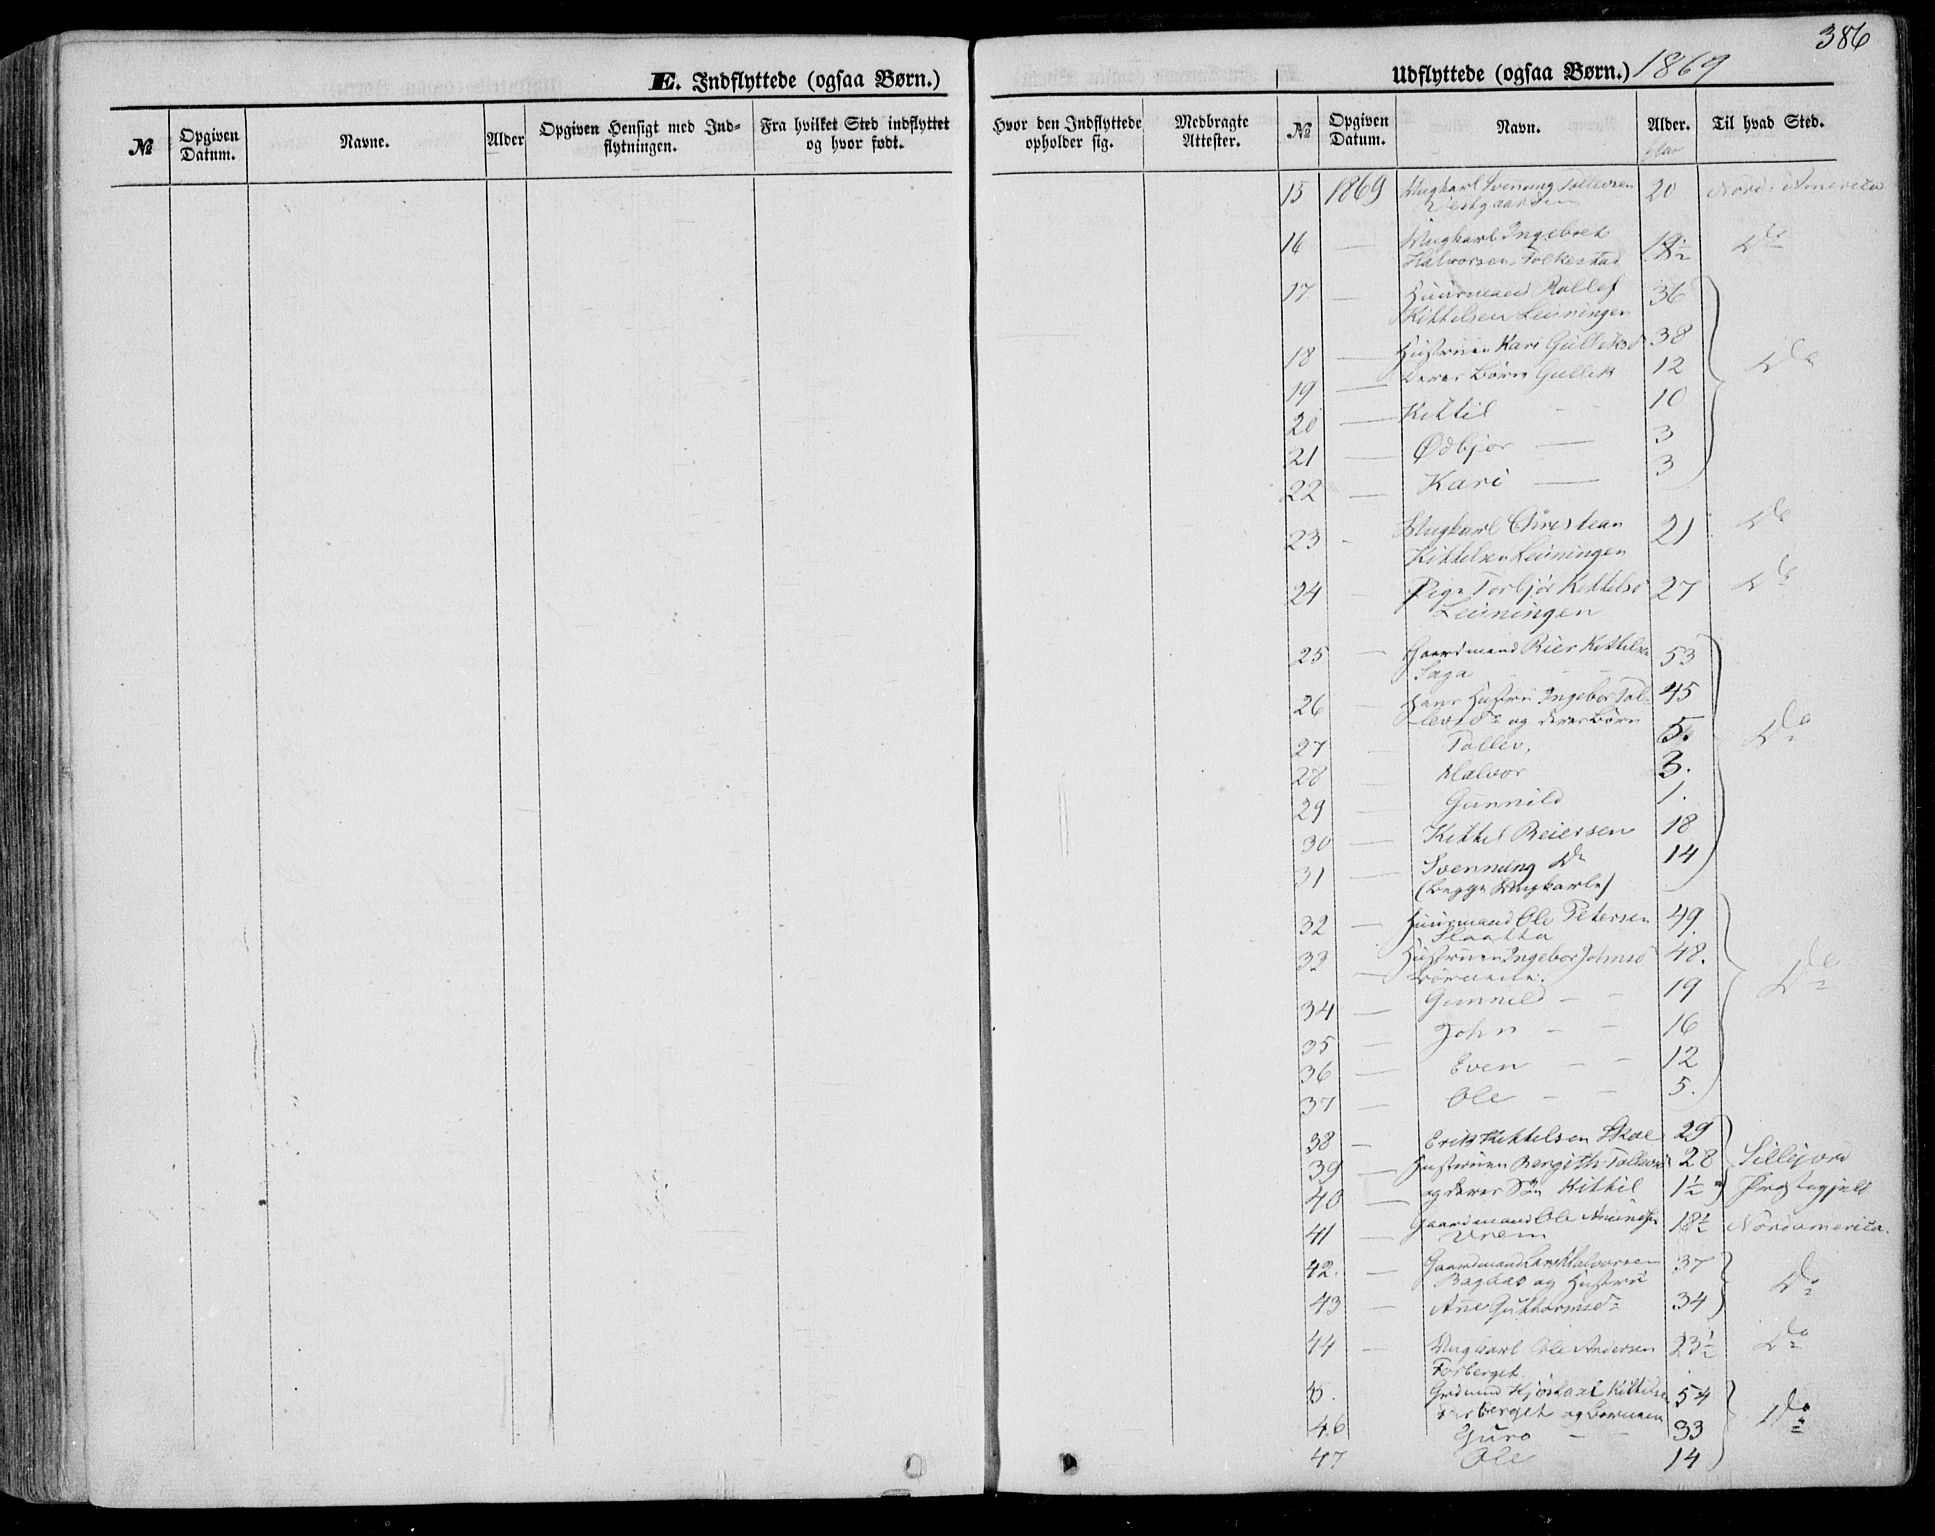 386
E. Indflyttede (ogsaa Børn.)
Udflyttede (ogsaa Børn.) 1869
№ Opgiven Datum. Navne. Alder Opgiven Hensigt med Ind-flytningen. Fra hvilket Sted indflyttet og hvor født. Hvor den Indflyttede opholder sig. Medbragte Attester. № Opgiven Datum. Navn. Alder. Til hvad Sted.
15 1869 Ungkarl Svennung Tollevsen 20 Nord-America
Vestgaarden
16 — Ungkarl Ingebret 19½ Do
Halvorsen Folkestad
17 — Huusmand Rollef 36
Kittelsen Leiningen
18 — Hustruen Kari Gulliksd 38 Do
19 — Deres Børn Gullik 12
20 — Kittil 10
21 — Ødbjør 3
22 — Kari 3
23 - Ungkarl Christean 21 Do
Kittelsen Leiningen
24 Pige Torbjør Kittelsd 27 Do
Leiningen
25 — Gaardmand Reier Kittelsen 53
Saga
26 — Hans Hustru Ingebor Tol- 45
levsd og deres Børn
27 — Tollev, 5. Do
28 — Halvor 3.
29 — Gunnild 1.
30 — Kittel Reiersen 18
31 — Svennung Do 14
(begge Ungkarle)
32 — Huusmand Ole Petersen 49.
Slaatta
33 Hustruen Ingebor Johnsd 48.
— Børnene. Do
34 — Gunnild 19
35 — John 16
36 — Even 12
37 — Ole 5.
38 — Erik Kittelsen Skoe 29
39 — Hustruen Bergith Tollevsd 28 Sillejord
40 — og deres Søn Kittil 1½ Præstegjeld
41 — Gaardmand Ole Amundsen 18½ Nordamerica.
Vrem
42. — Gaardmand Lars Halvorsen 37
Bagaas og Hustru Do
43 — Ane Guttormsd 34
44 — Ungkarl Ole Andersen 23½ Do
Forberget
45. Grdmnd Kjøstaal Kittilsen 54
Forberget og Børnene
46 Guro 33 Do
47 Ole 14